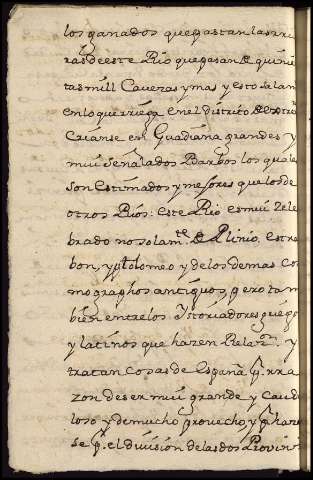 los ganados que pastan las rri
ras de este Rio que pasan de quinie
tas mill Cavezas y mas y esto sa lam
en lo que rriega en el districto de extre
Crianse en Guadiana grandes y
mui señalados Barbos los quales
son estimados y mejores que los de
otros Rios: este Rio es mui zele
brado no solamte de Plinio, estra
bon, y ptolomeo y de los demas cos
mographos antiguos, pero tam
bien entre los Istoriadores griego
y latinos que hazen Relaon. y
tratan cosas de España pr. rra
zon de ser mui grande y caud
loso y de mucho provecho y pr. haze
se pr. el division de las dos Provin